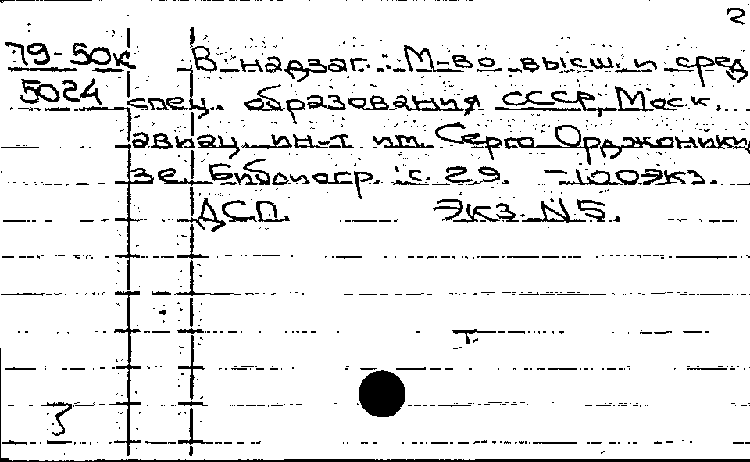 2
79-50к В надзаг.: М-во высш. и сред
5024 спец. образования СССР, Моск.
авиац. ин-т им. Серго Орджоники
зе. Библиогр.: с. 29. - 100 экз.
ДСП. Экз. N5.